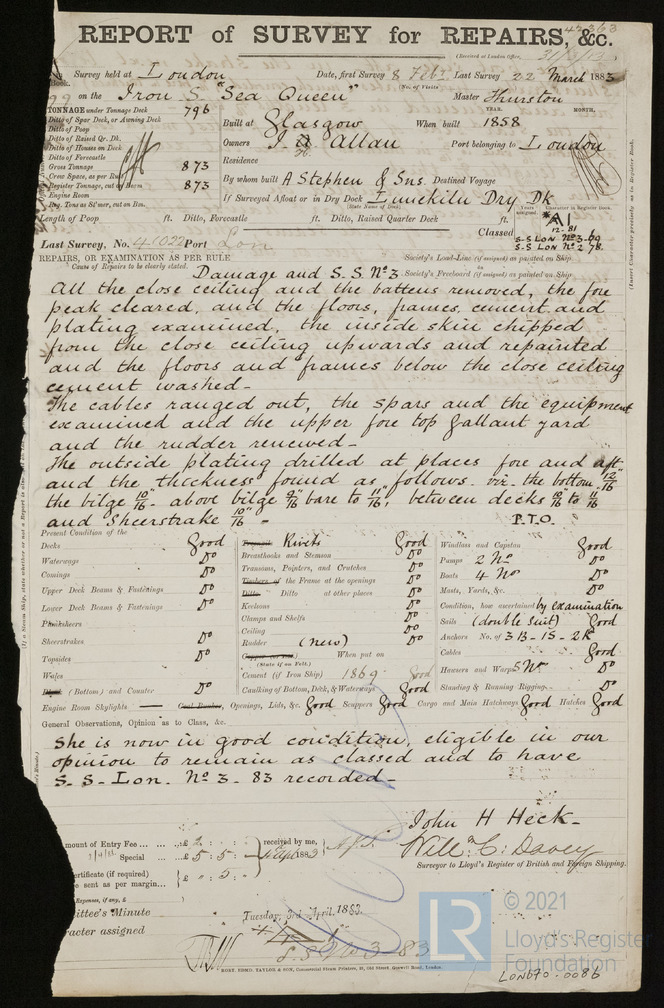 43363
REPORT of SURVEY for REPAIRS, &c.
(Received at London Office,
Survey held at London Date, first Survey 8 Feby Last Survey 22 March 1883
(No. of Visits
on the Iron S. "Sea Queen" Master Thurston
TONNAGE under Tonnage Deck 796
Ditto of Spar Deck, or Awning Deck
Ditto of Poop
Ditto of Raised Qr. Dk.
Ditto of Houses on Deck
Ditto of Forecastle
Gross Tonnage 873
Crew Space, as per Rule
Register Tonnage, cut on Beam 873
Engine Room
Reg. Tons as St'mer, cut on Bm.
YEAR. MONTH.
Built at Glasgow When built 1858
Owners Allan Port belonging to London
Residence
By whom built A Stephen & Sns. Destined Voyage
If Surveyed Afloat or in Dry Dock Limekiln Dry Dk
(State Name of Dock)
Length of Poop ft. Ditto, Forecastle ft. Ditto, Raised Quarter Deck ft.
Years assigned. Character in Register Book.
Classed A1
12-81
S.S LON No 3-69
S.S LON No 2 78
Last Survey, No. 41022 Port Lon
REPAIRS, OR EXAMINATION AS PER RULE
Cause of Repairs to be clearly stated. Damage and S.S. No 3.
Society's Load-Line (if assigned) as painted on Ship
Society's Freeboard (if assigned) as painted on Ship
All the close ceiling and the battens removed, the fore
peak cleared, and the floors, frames, cement and
plating examined, the inside skin chipped
from the close ceiling upwards and repainted
and the floors and frames below the close ceiling
cement washed-
The cables ranged out, the spars and the equipment
examined and the upper fore top gallant yard
and the rudder renewed-
The outside plating drilled at places fore and aft
and the thickness found as follows. viz. the bottom 12/16"
the bilge 10/16" above bilge 9/16" bare to 11/16", between decks 10/16" to 11/16
and Sheerstrake 10/16" -
P.T.O.
Present Condition of the
Decks Good
Waterways Do
Comings Do
Upper Deck Beams & Fastenings Do
Lower Deck Beams & Fastenings Do
Planksheers
Sheerstrakes Do
Topsides Do
Wales
(Bottom) and Counter Do
Rivets Good
Breasthooks and Stemson Do
Transoms, Pointers, and Crutches Do
Timbers of the Frame at the openings Do
Ditto Ditto at other places Do
Keelsons Do
Clamps and Shelfs Do
Ceiling Do
Rudder (new) Do
When put on
(State if on Felt.)
Cement (if Iron Ship) 1869 Good
Caulking of Bottom, Deck, & Waterways Good
Windlass and Capstan Good
Pumps 2 No Do
Boats 4 No Do
Masts, Yards, &c. Do
Condition, how ascertained by examination
Sails (double suit) Good
Anchors No. of 3B-1S-2K Do
Cables Good
Hawsers and Warps 5 No Do
Standing & Running Rigging Do
Engine Room Skylights — Coal Bunker, Openings, Lids, &c. Good Scuppers Good Cargo and Main Hatchways Good Hatches Good
General Observations, Opinion as to Class, &c.
She is now in good condition, eligible in our
opinion to remain as classed and to have
S.S. Lon. No 3. 83 recorded-
John H Heck-
Willm C. Davey
Surveyor to Lloyd's Register of British and Foreign Shipping.
mount of Entry Fee ... £ 2
Special ... £ 5 : 5 :
received by me,
1883
ertificate (if required)
ee sent as per margin...
Expenses, if any, £
ittee's Minute Tuesday, 3rd April, 1883.
racter assigned
S.S No 3-83
ROBT. EDMD. TAYLOR & SON, Commercial Steam Printers, 19, Old Street, Goswell Road, London.
LR
© 2021
Lloyd's Register
Foundation
LON670-0086